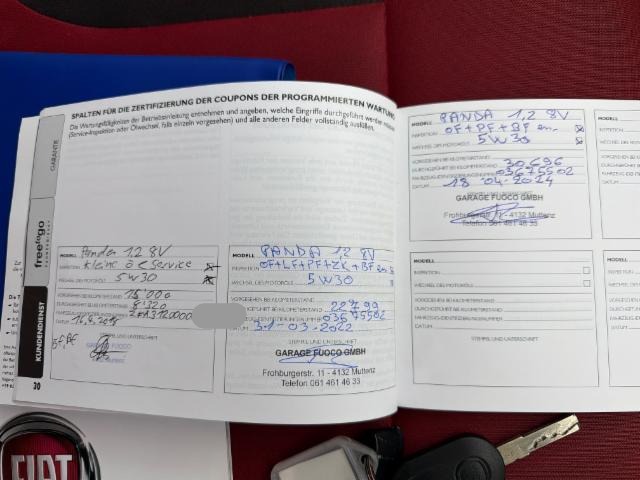 SPALTEN FÜR DIE ZERTIFIZIERUNG DER COUPONS DER PROGRAMMIERTEN WARTUNG
Die Wartungsfälligkeiten der Betriebsanleitung entnehmen und angeben, welche Eingriffe durchgeführt werden
(Service-Inspektion oder Ölwechsel, falls einzeln vorgesehen) und alle anderen Felder vollständig ausfüllen.
GARANTIE
freetogo
KUNDENDIENST
MODELL Panda 1.2 8V
INSPEKTION kleine Service
WECHSEL DES MOTORÖLS 5W30
VORGESEHEN BEI KILOMETERSTAND 15000
DURCHGEFÜHRT BEI KILOMETERSTAND 81320
FAHRZEUG-IDENTIFIZIERUNGSNUMMER ZFA3120000
DATUM
STEMPEL UND UNTERSCHRIFT
30
MODELL PANDA 1,2 8V
INSPEKTION OF+LF+PF+ZK+BF
WECHSEL DES MOTORÖLS 5W30
VORGESEHEN BEI KILOMETERSTAND
DURCHGEFÜHRT BEI KILOMETERSTAND 22799
FAHRZEUG-IDENTIFIZIERUNGSNUMMER 03675502
DATUM 31-03-2022
STEMPEL UND UNTERSCHRIFT
GARAGE FUOCO GMBH
Frohburgerstr. 11 - 4132 Muttenz
Telefon 061 461 46 33
MODELL PANDA 1,2 8V
INSPEKTION OF+PF+BF
WECHSEL DES MOTORÖLS 5W30
VORGESEHEN BEI KILOMETERSTAND
DURCHGEFÜHRT BEI KILOMETERSTAND 30696
FAHRZEUG-IDENTIFIZIERUNGSNUMMER 03675502
DATUM 18 04-2024
GARAGE FUOCO GMBH
Frohburgerstr. 11 - 4132 Muttenz
Telefon 061 461 46 33
MODELL
INSPEKTION
WECHSEL DES MOTORÖLS
VORGESEHEN BEI KILOMETERSTAND
DURCHGEFÜHRT BEI KILOMETERSTAND
FAHRZEUG-IDENTIFIZIERUNGSNUMMER
DATUM
STEMPEL UND UNTERSCHRIFT
MODELL
INSPEKTION
WECHSEL DES MOTORÖLS
VORGESEHEN BEI
DURCHGEFÜHRT BEI
DATUM
MODELL
INSPEKTION
WECHSEL DES
VORGESEHEN BEI
DURCHGEFÜHRT BEI
DATUM
FIAT